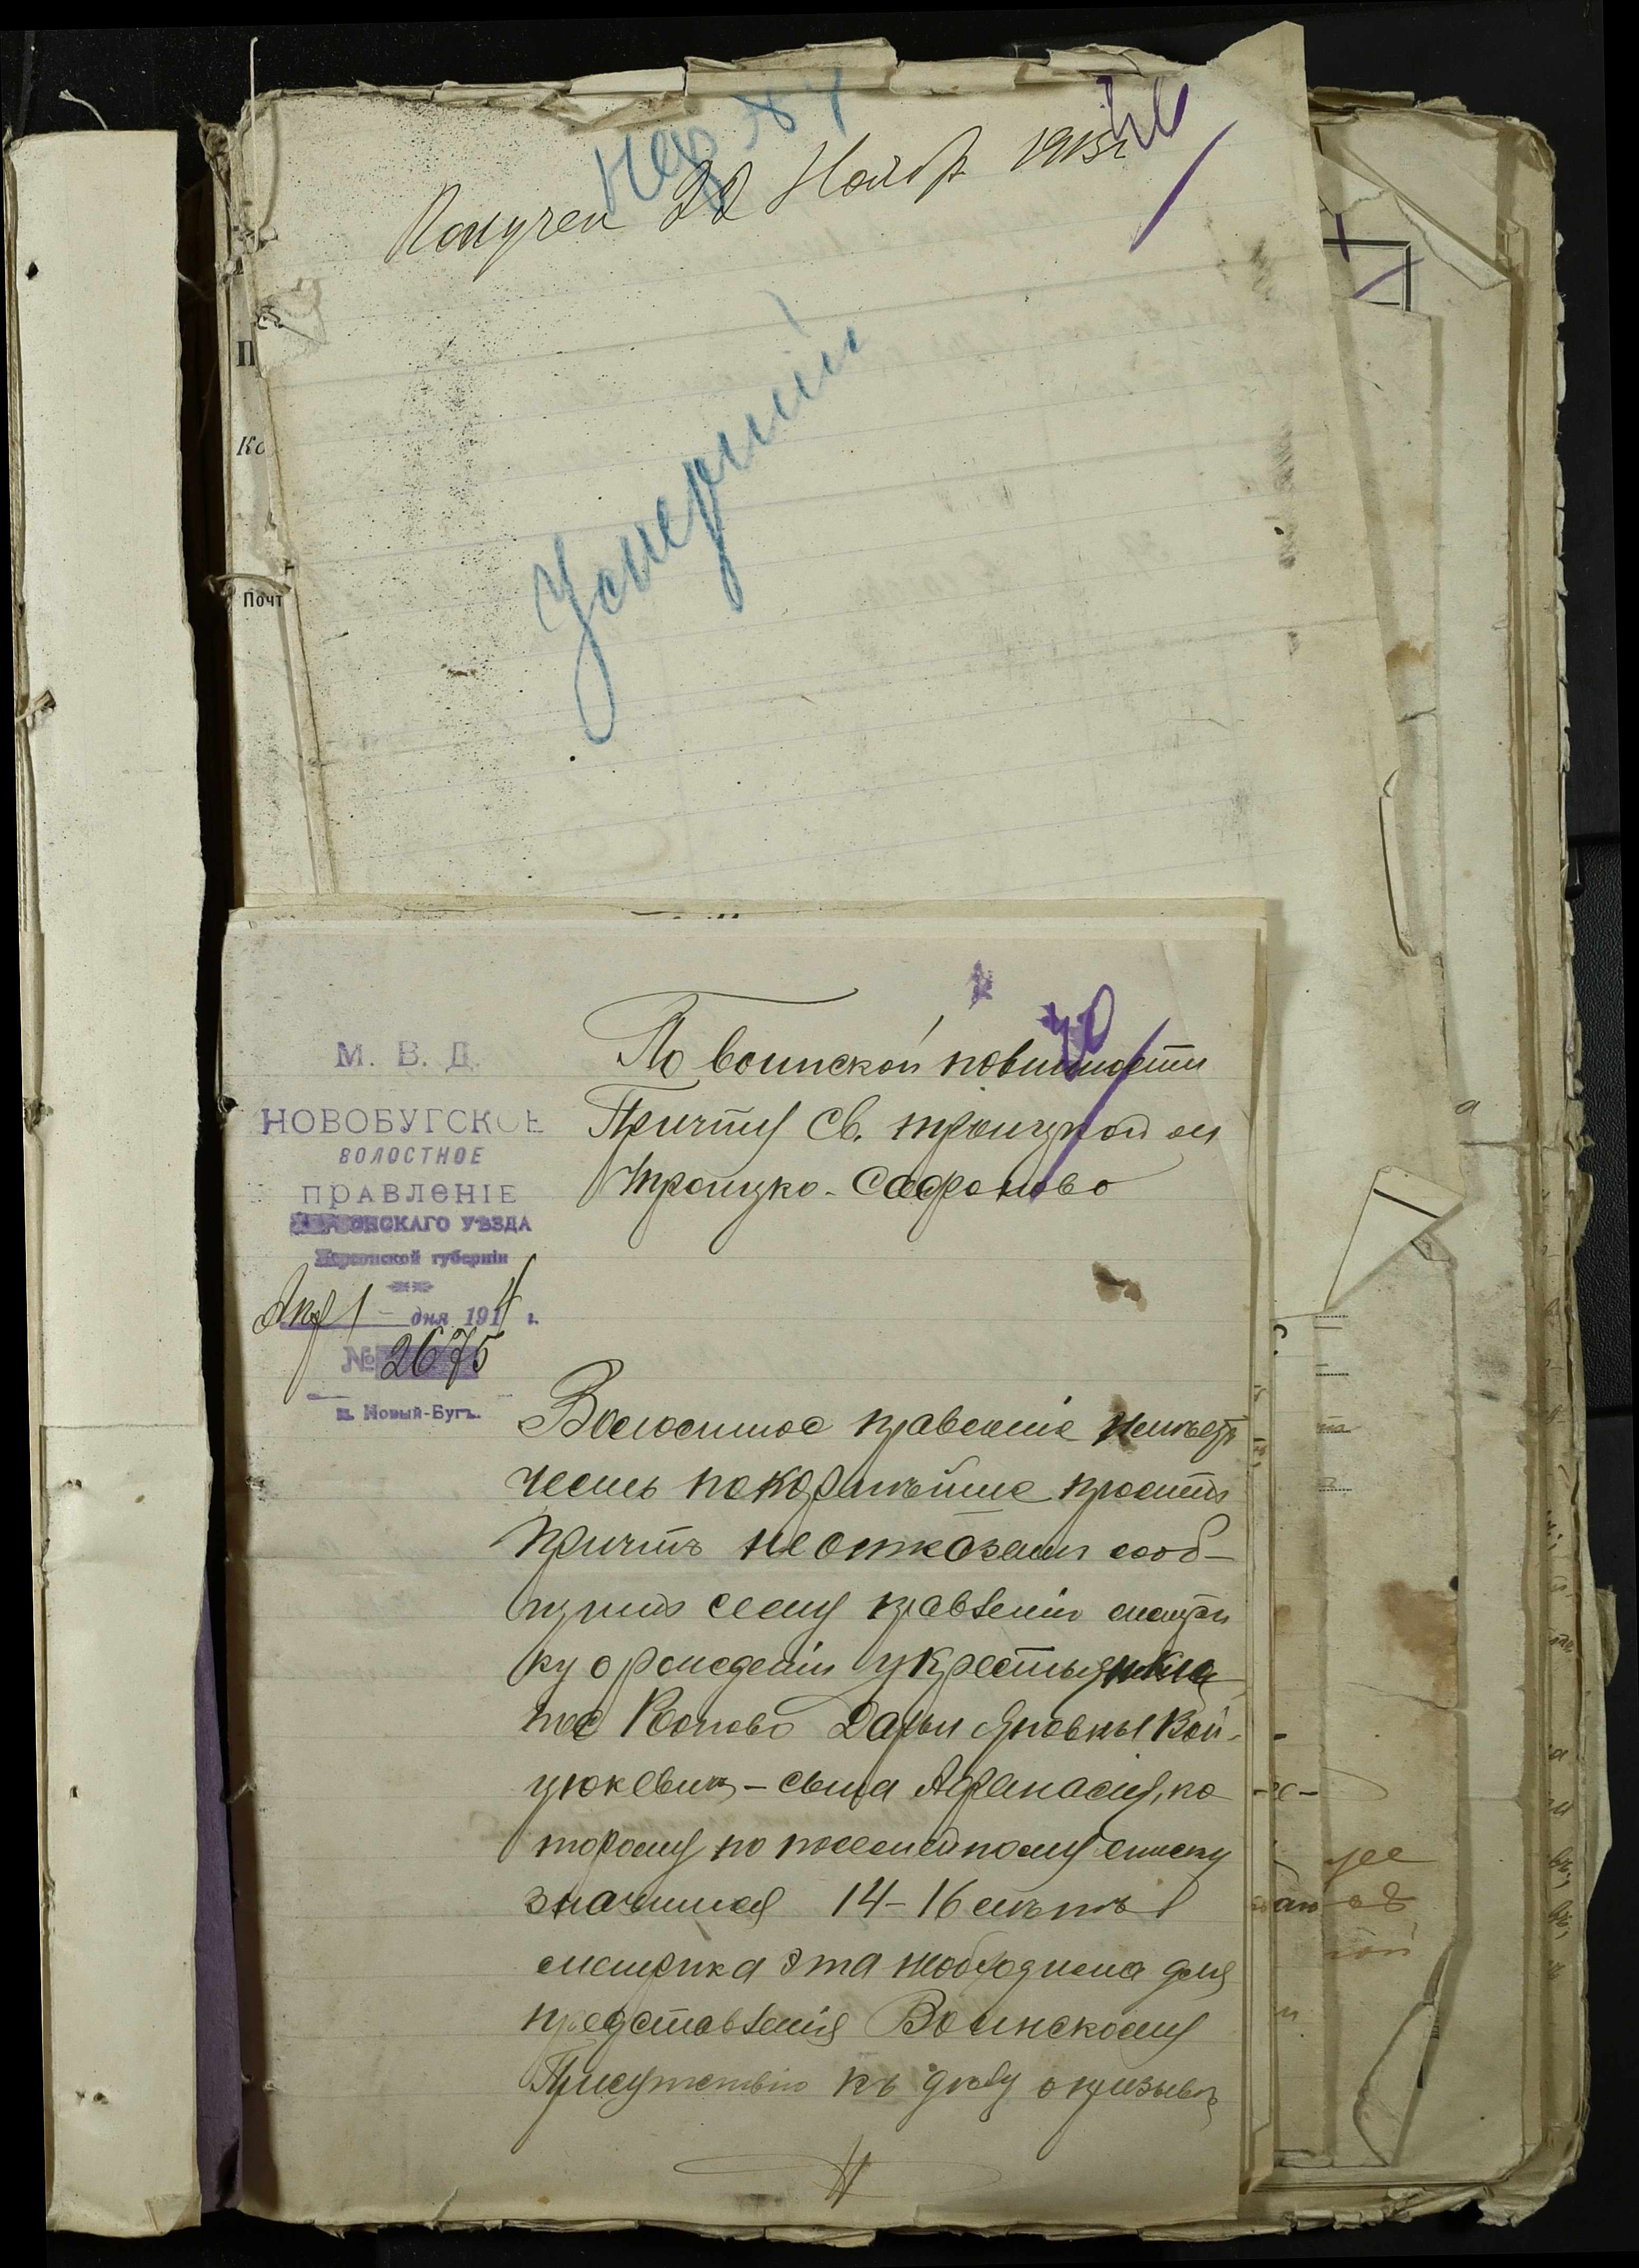 Получен 22 Ноябр 1913 г
Умерший
М. В. Д.
НОВОБУГСКОЕ
ВОЛОСТНОЕ
ПРАВЛЕНІЕ
ХЕРСОНСКАГО УѢЗДА
Херсонской губерніи
Апр 1 дня 1914 г.
№ 2675
п. Новый-Бугъ.
По воинской повинности
Причту Св. Троицкой
Троицко-Сафоново
Волостное правленіе имѣетъ
честь покорнѣйше просить
причтъ не отказать сооб-
щить сему правленію метри
ку о рожденіи у крестьянки
пос Дарьи Яковны Вой-
цюкевичъ – сына Афанасія, ко
торому по посемейному списку
значится 14–16 лѣтъ
метрика эта необходима для
представленія Воинскому
Присутствію къ дѣлу о призывѣ
П
Ко
Почт